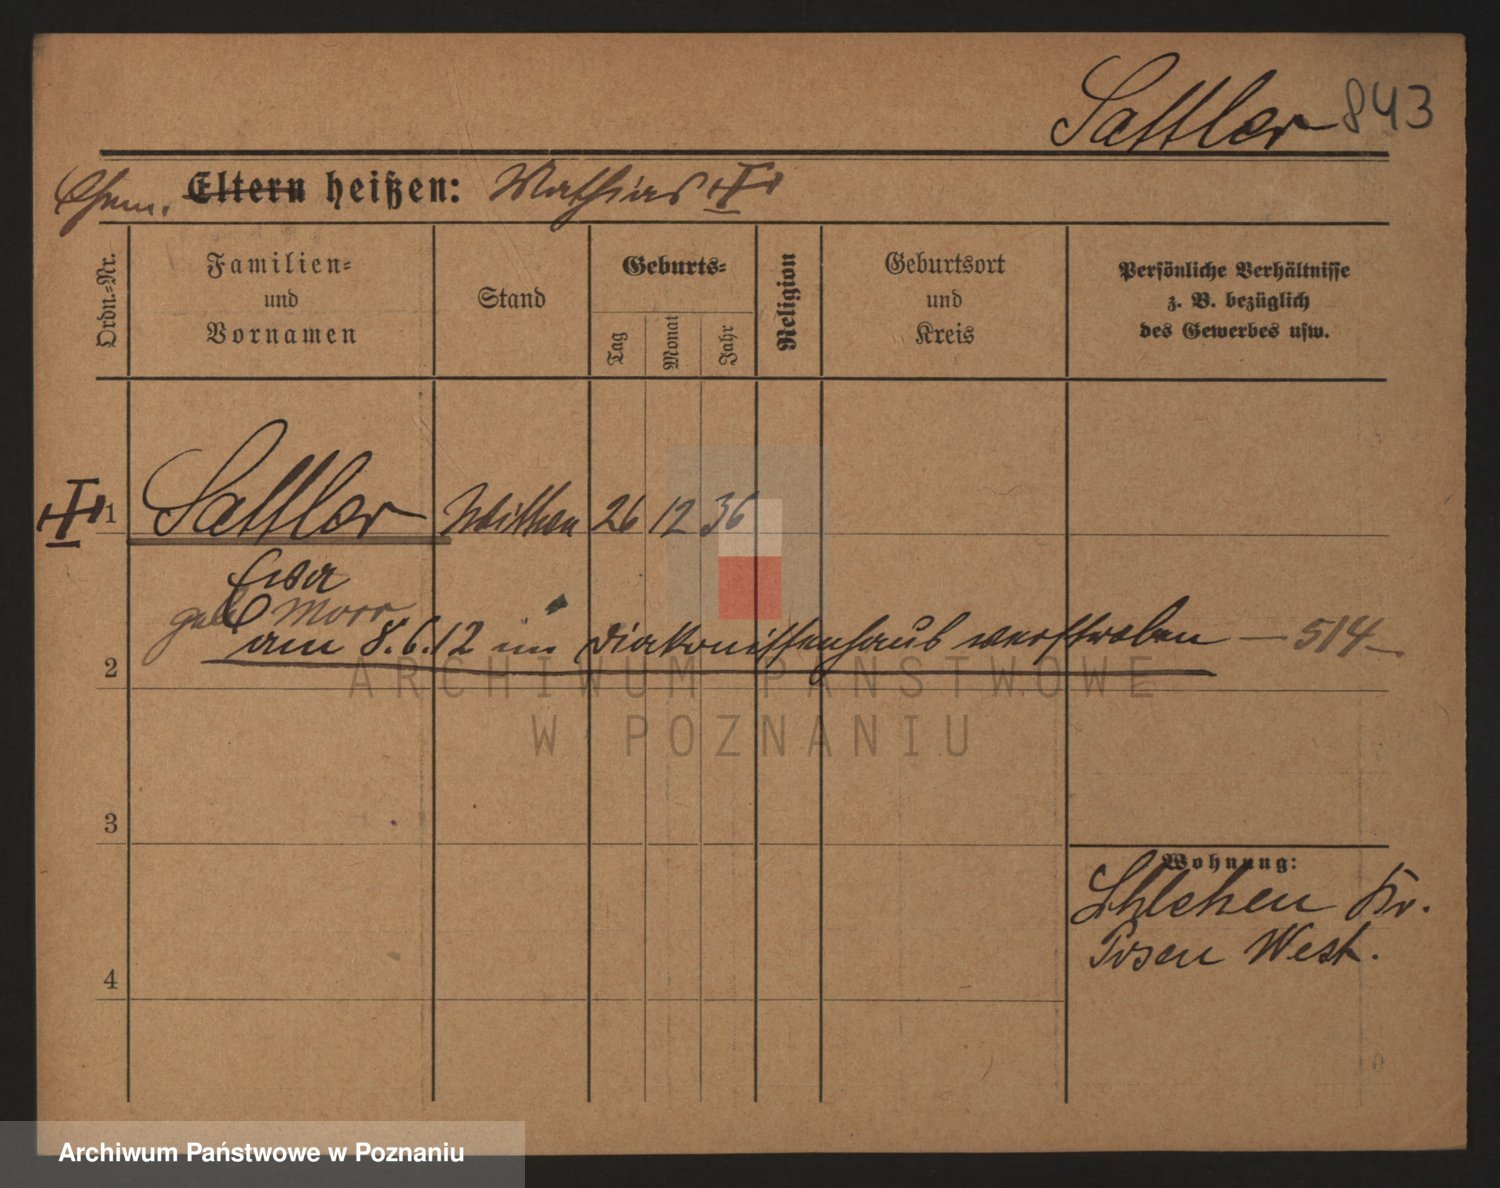 Sattler 843
Ehem. Eltern heißen: Mathias
Ordn.-Nr.
Familien-
und
Vornamen
Stand
Geburts-
Tag
Monat
Jahr
Religion
Geburtsort
und
Kreis
Persönliche Verhältnisse
z. B. bezüglich
des Gewerbes usw.
1 Sattler 26 12 36
Eva
geb. Morr
am 8.6.12 im Diakonissenhaus verstorben — 514 —
2
ARCHIWUM PAŃSTWOWE
W POZNANIU
3
Wohnung:
Kr.
Posen West.
4
Archiwum Państwowe w Poznaniu